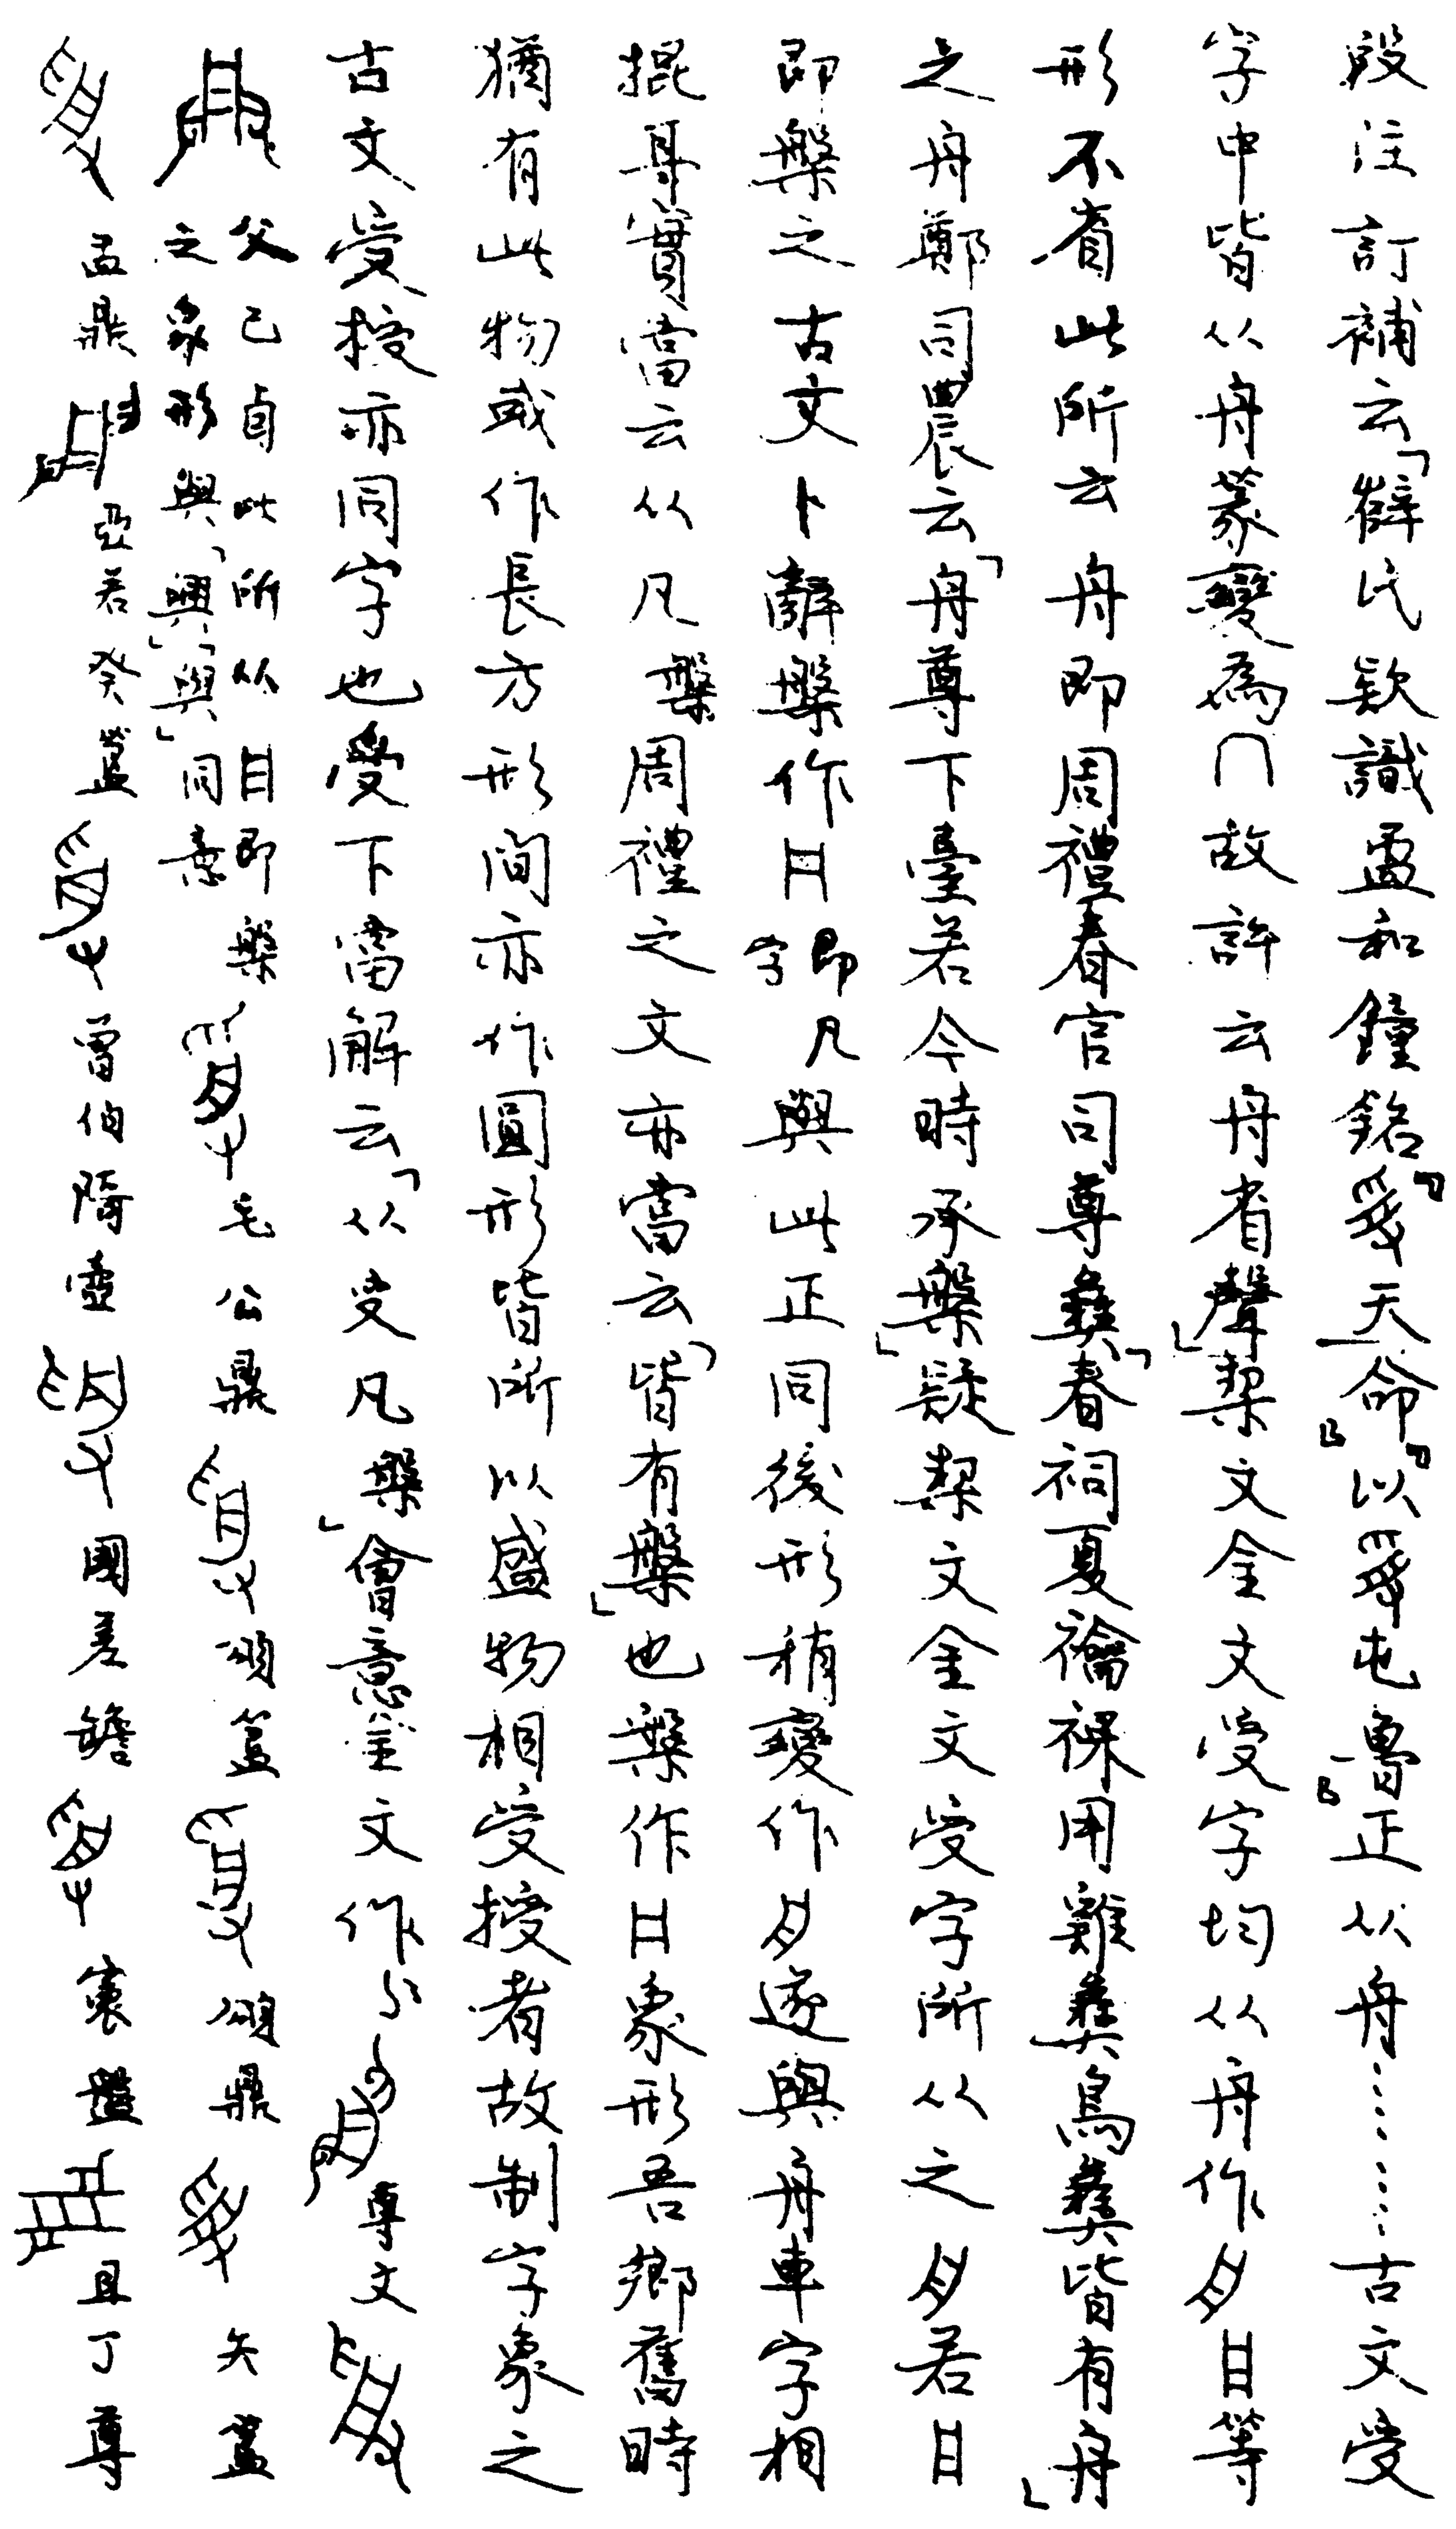 段注訂補云「薛氏欵識盄和鐘銘『受天命』『以受屯魯』正从舟……古文受
字中皆从舟篆變為冂故許云舟省聲」栔文金文受字均从舟作等
形不省此所云舟即周禮春官司尊彝「春祠夏禴祼用雞彝鳥彝皆有舟」
之舟鄭司農云「舟尊下臺若今時承槃」疑栔文金文受字所从之若
即槃之古文卜辭槃作即凡字與此正同後形稍變作遂與舟車字相
掍耳實當云从凡槃周禮之文亦當云「皆有槃」也槃作象形吾鄉舊時
猶有此物或作長方形間亦作圓形皆所以盛物相受授者故制字象之
古文受授亦同字也受下當解云「从𠬪凡槃」會意金文作尊文
父己卣此所从即槃之象形與「興」「與」同意毛公鼎頌簋頌鼎矢簋
盂鼎亞若癸簋曾伯陭壺國差𦉜寰盤且丁尊